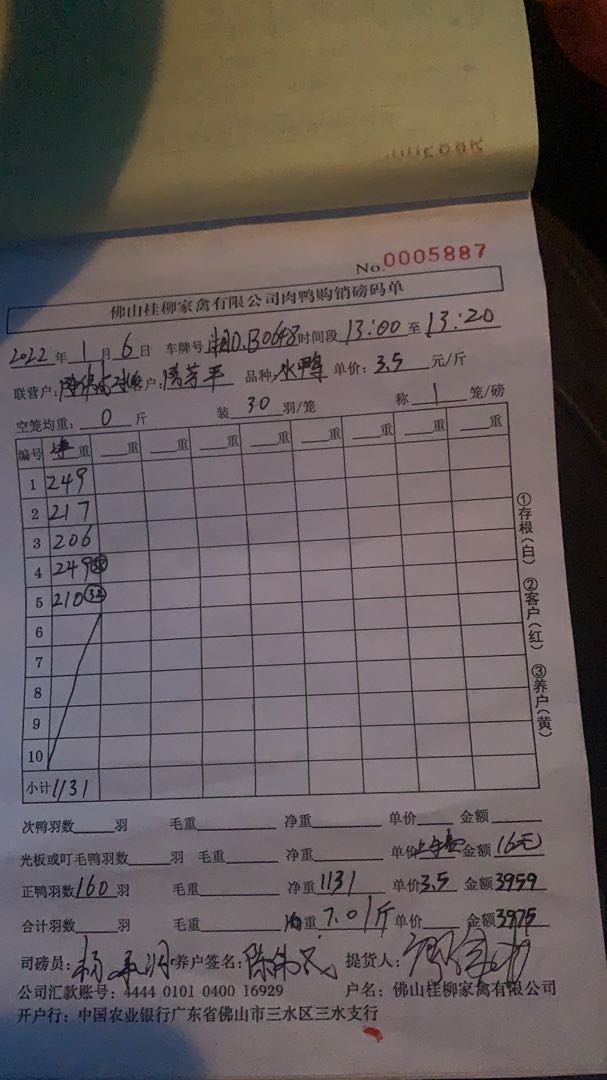 No.0005887
佛山桂柳家禽有限公司肉鸭购销磅码单
2022年1月6日 车牌号 湘D.B0648 时间段 13:00 至 13:20
联营户: 客户: 周芳平 品种: 水鸭 单价: 3.5 元/斤
空笼均重: 0 斤 装 30 羽/笼 称 1 笼/磅
编号 重 重 重 重 重 重 重 重 重
1 249
2 217
3 206
4 249
5 210 32
6
7
8
9
10
小计 1131
①存根(白) ②客户(红) ③养户(黄)
次鸭羽数 羽 毛重 净重 单价 金额
光板或叮毛鸭羽数 羽 毛重 净重 单价 金额 16元
正鸭羽数 160 羽 毛重 净重 1131 单价 3.5 金额 3959
合计羽数 羽 毛重 重 7.01斤 单价 金额 3975
司磅员: 养户签名: 提货人:
公司汇款账号: 4444 0101 0400 16929 户名: 佛山桂柳家禽有限公司
开户行: 中国农业银行广东省佛山市三水区三水支行